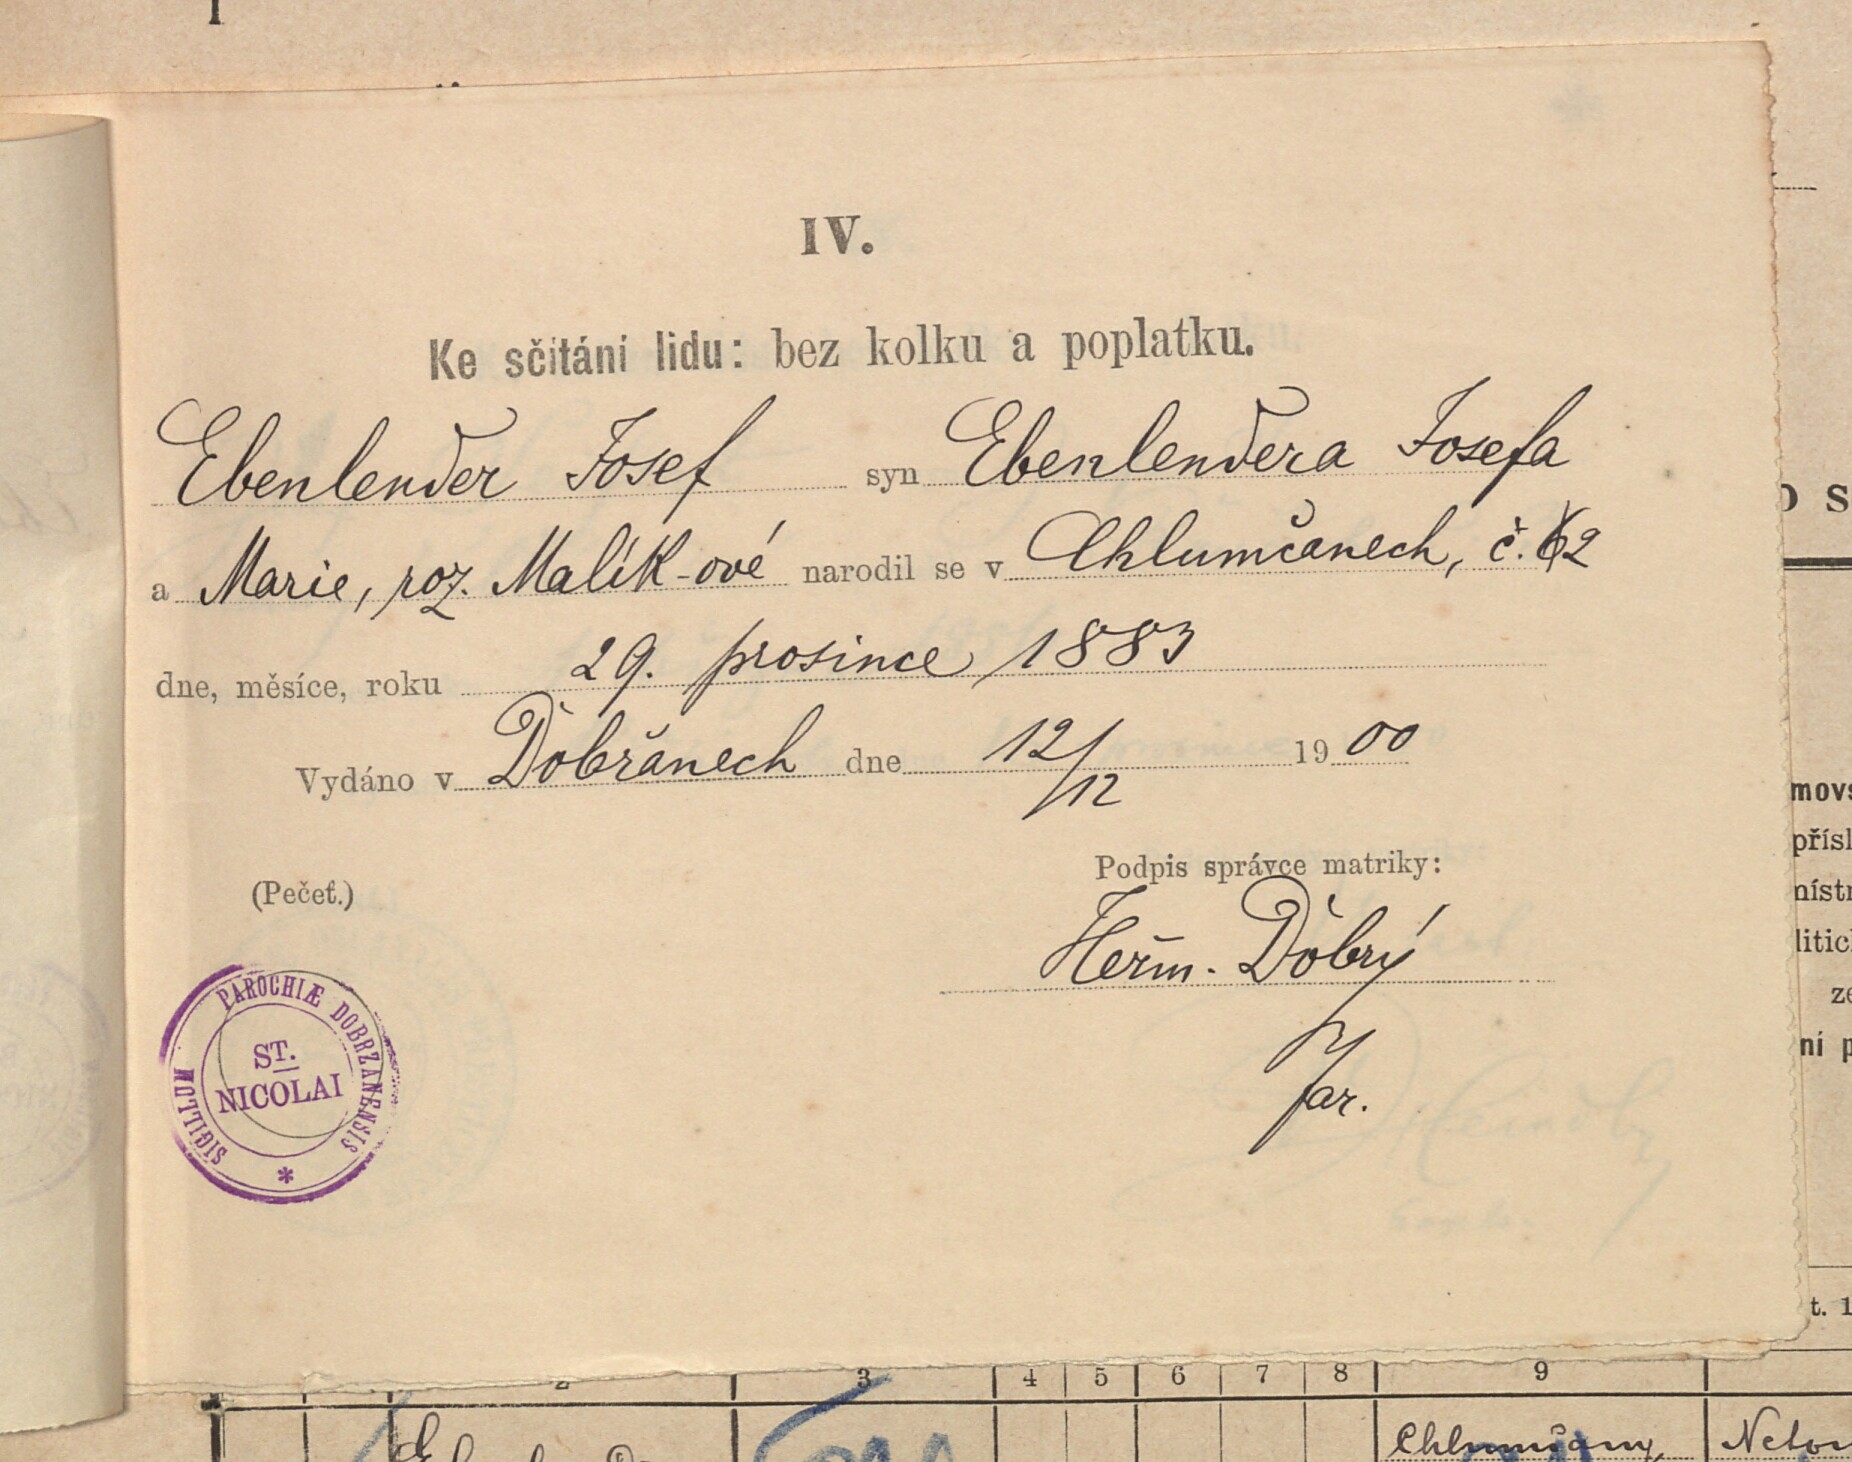 IV.
Ke sčítání lidu: bez kolku a poplatku.
Ebenlender Josef syn Ebenlendera Josefa
a Marie, roz. Malík-ové narodil se v Chlumčanech, č. 62
dne, měsíce, roku 29. prosince 1883
Vydáno v Dobřanech dne 12/12 1900
(Pečeť.)
Podpis správce matriky:
Heřm. Dobrý
far.
SIGILLUM PAROCHIÆ DOBRZANENSIS
ST.
NICOLAI
o s
movs
přísl
místn
litic
ze
ní p
t. 1
3 4 5 6 7 8 9
Chlumčany,